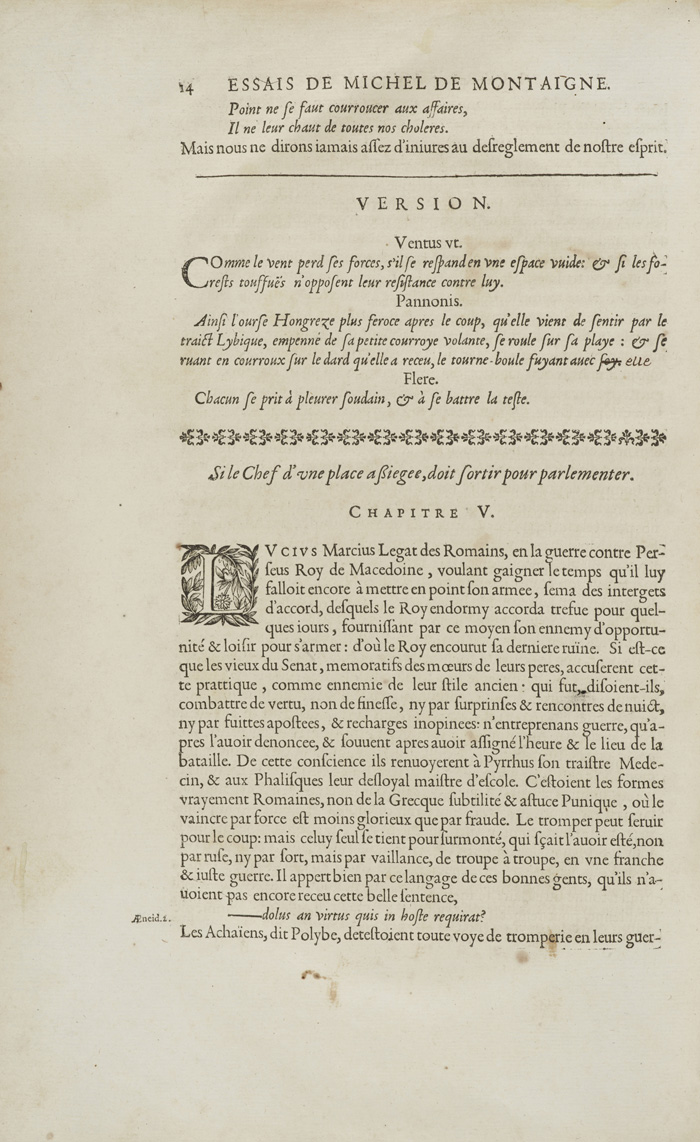 14 ESSAIS DE MICHEL DE MONTAIGNE.
Point ne ſe faut courroucer aux affaires,
Il ne leur chaut de toutes nos choleres.
Mais nous ne dirons iamais aſſez d'iniures au deſreglement de noſtre eſprit.
VERSION.
Ventus vt.
COmme le vent perd ſes forces, s'il ſe reſpand en vne eſpace vuide: & ſi les fo-
reſts touffuës n'oppoſent leur reſiſtance contre luy.
Pannonis.
Ainſi l'ourſe Hongreze plus feroce apres le coup, qu'elle vient de ſentir par le
traict Lybique, empenné de ſa petite courroye volante, ſe roule ſur ſa playe : & ſe
ruant en courroux ſur le dard qu'elle a receu, le tourne-boule fuyant auec ſoy. elle
Flere.
Chacun ſe prit à pleurer ſoudain, & à ſe battre la teſte.
Si le Chef d'vne place aſſiegee, doit ſortir pour parlementer.
CHAPITRE V.
LVCIVS Marcius Legat des Romains, en la guerre contre Per-
ſeus Roy de Macedoine, voulant gaigner le temps qu'il luy
falloit encore à mettre en point ſon armee, ſema des intergets
d'accord, deſquels le Roy endormy accorda trefue pour quel-
ques iours, fourniſſant par ce moyen ſon ennemy d'opportu-
nité & loiſir pour s'armer : d'où le Roy encourut ſa derniere ruïne. Si eſt-ce
que les vieux du Senat, memoratifs des mœurs de leurs peres, accuſerent cet-
te prattique, comme ennemie de leur ſtile ancien : qui fut, diſoient-ils,
combattre de vertu, non de fineſſe, ny par ſurprinſes & rencontres de nuict,
ny par fuittes apoſtees, & recharges inopinees: n'entreprenans guerre, qu'a-
pres l'auoir denoncee, & ſouuent apres auoir aſſigné l'heure & le lieu de la
bataille. De cette conſcience ils renuoyerent à Pyrrhus ſon traiſtre Mede-
cin, & aux Phaliſques leur deſloyal maiſtre d'eſcole. C'eſtoient les formes
vrayement Romaines, non de la Grecque ſubtilité & aſtuce Punique, où le
vaincre par force eſt moins glorieux que par fraude. Le tromper peut ſeruir
pour le coup: mais celuy ſeul ſe tient pour ſurmonté, qui ſçait l'auoir eſté, non
par ruſe, ny par ſort, mais par vaillance, de troupe à troupe, en vne franche
& iuſte guerre. Il appert bien par ce langage de ces bonnes gents, qu'ils n'a-
uoient pas encore receu cette belle ſentence,
Æneid.2. ——dolus an virtus quis in hoſte requirat?
Les Achaïens, dit Polybe, deteſtoient toute voye de tromperie en leurs guer-